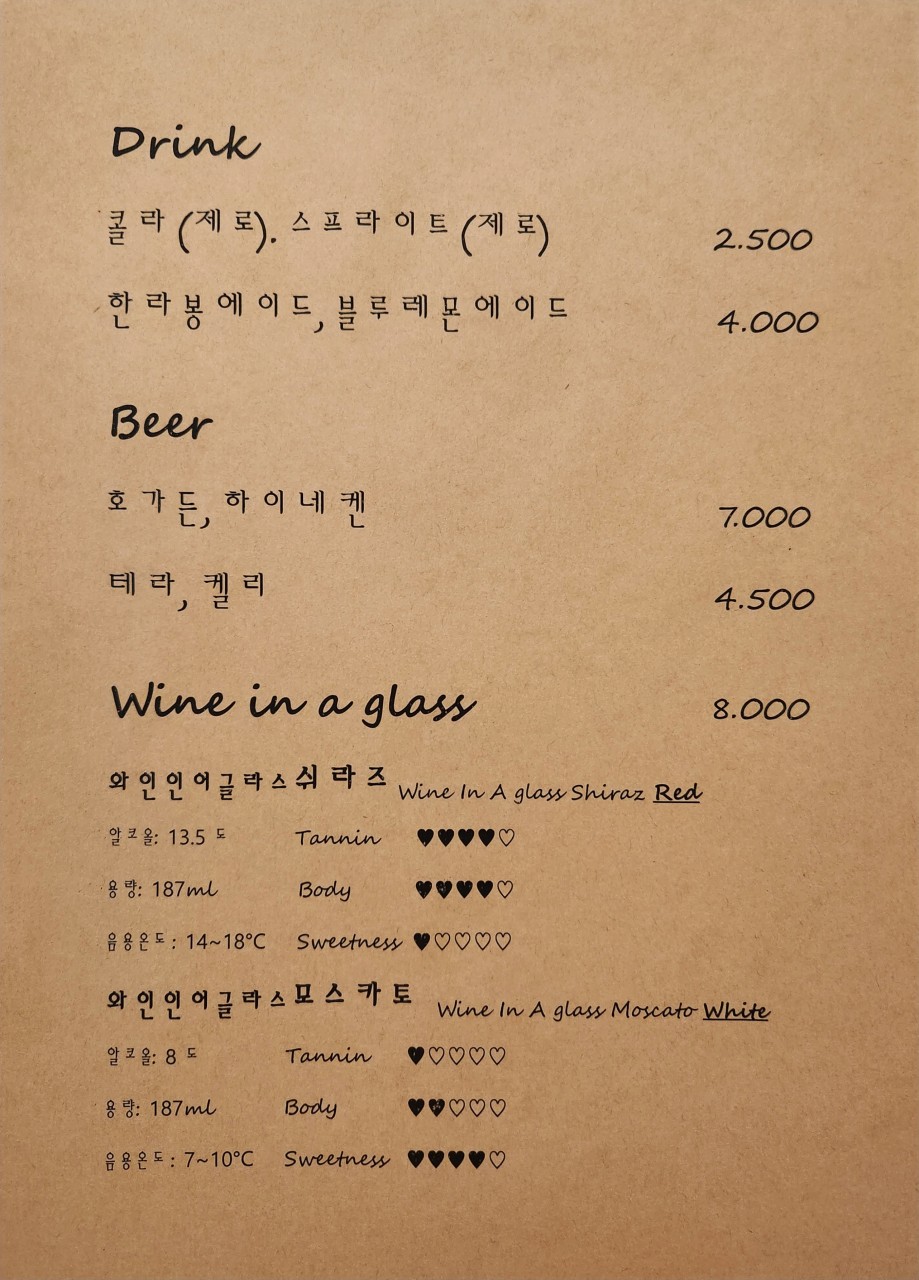 Drink
콜라(제로). 스프라이트(제로) 2.500
한라봉에이드, 블루레몬에이드 4.000
Beer
호가든, 하이네켄 7.000
테라, 켈리 4.500
Wine in a glass 8.000
와인인어글라스쉬라즈 Wine In A glass Shiraz Red
알코올: 13.5 도 Tannin ♥♥♥♥♡
용량: 187ml Body ♥♥♥♥♡
음용온도: 14~18°C Sweetness ♥♡♡♡♡
와인인어글라스모스카토 Wine In A glass Moscato White
알코올: 8 도 Tannin ♥♡♡♡♡
용량: 187ml Body ♥♥♡♡♡
음용온도: 7~10°C Sweetness ♥♥♥♥♡